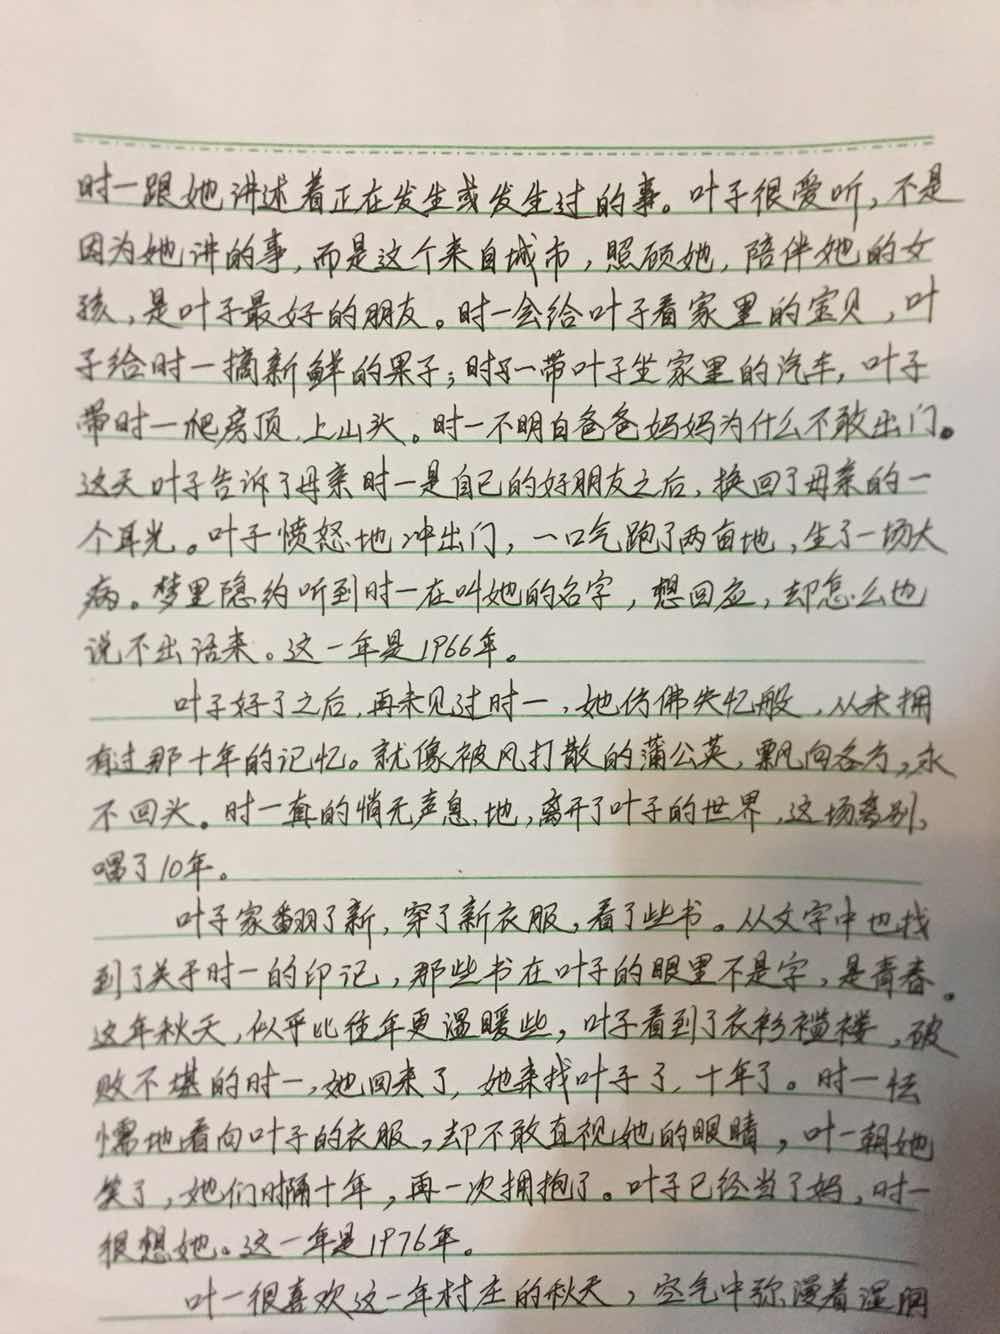 时一跟她讲述着正在发生或发生过的事。叶子很爱听，不是
因为她讲的事，而是这个来自城市，照顾她，陪伴她的女
孩，是叶子最好的朋友。时一会给叶子看家里的宝贝，叶
子给时一摘新鲜的果子；时一带叶子坐家里的汽车，叶子
带时一爬房顶，上山头。时一不明白爸爸妈妈为什么不敢出门。
这天叶子告诉了母亲时一是自己的好朋友之后，换回了母亲的一
个耳光。叶子愤怒地冲出门，一口气跑了两亩地，生了一场大
病。梦里隐约听到时一在叫她的名字，想回应，却怎么也
说不出话来。这一年是1966年。
叶子好了之后，再未见过时一，她仿佛失忆般，从未拥
有过那十年的记忆。就像被风打散的蒲公英，飘向各方，永
不回头。时一真的悄无声息地，离开了叶子的世界，这场离别，
唱了10年。
叶子家翻了新，穿了新衣服，看了些书。从文字中也找
到了关于时一的印记，那些书在叶子的眼里不是字，是青春。
这年秋天，似乎比往年更温暖些，叶子看到了衣衫褴褛，破
败不堪的时一，她回来了，她来找叶子了，十年了。时一怯
懦地看向叶子的衣服，却不敢直视她的眼睛，叶一朝她
笑了，她们时隔十年，再一次拥抱了。叶子已经当了妈，时一
很想她。这一年是1976年。
叶一很喜欢这一年村庄的秋天，空气中弥漫着湿润